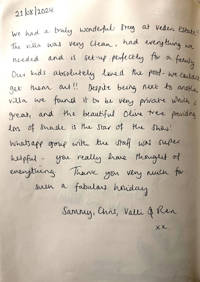 21/08/2024
We had a truly wonderful stay at Veden Estate!
The villa was very clean, had everything we
needed and is set-up perfectly for a family.
Our kids absolutely loved the pool - we couldn't
get them out!! Despite being next to another
villa we found it to be very private which is
great, and the beautiful Olive tree providing
lots of shade is the star of the show!
Whatsapp group with the staff was super
helpful - you really have thought of
everything. Thank you very much for
such a fabulous holiday
Sammy, Chris, Valli & Ren
xx